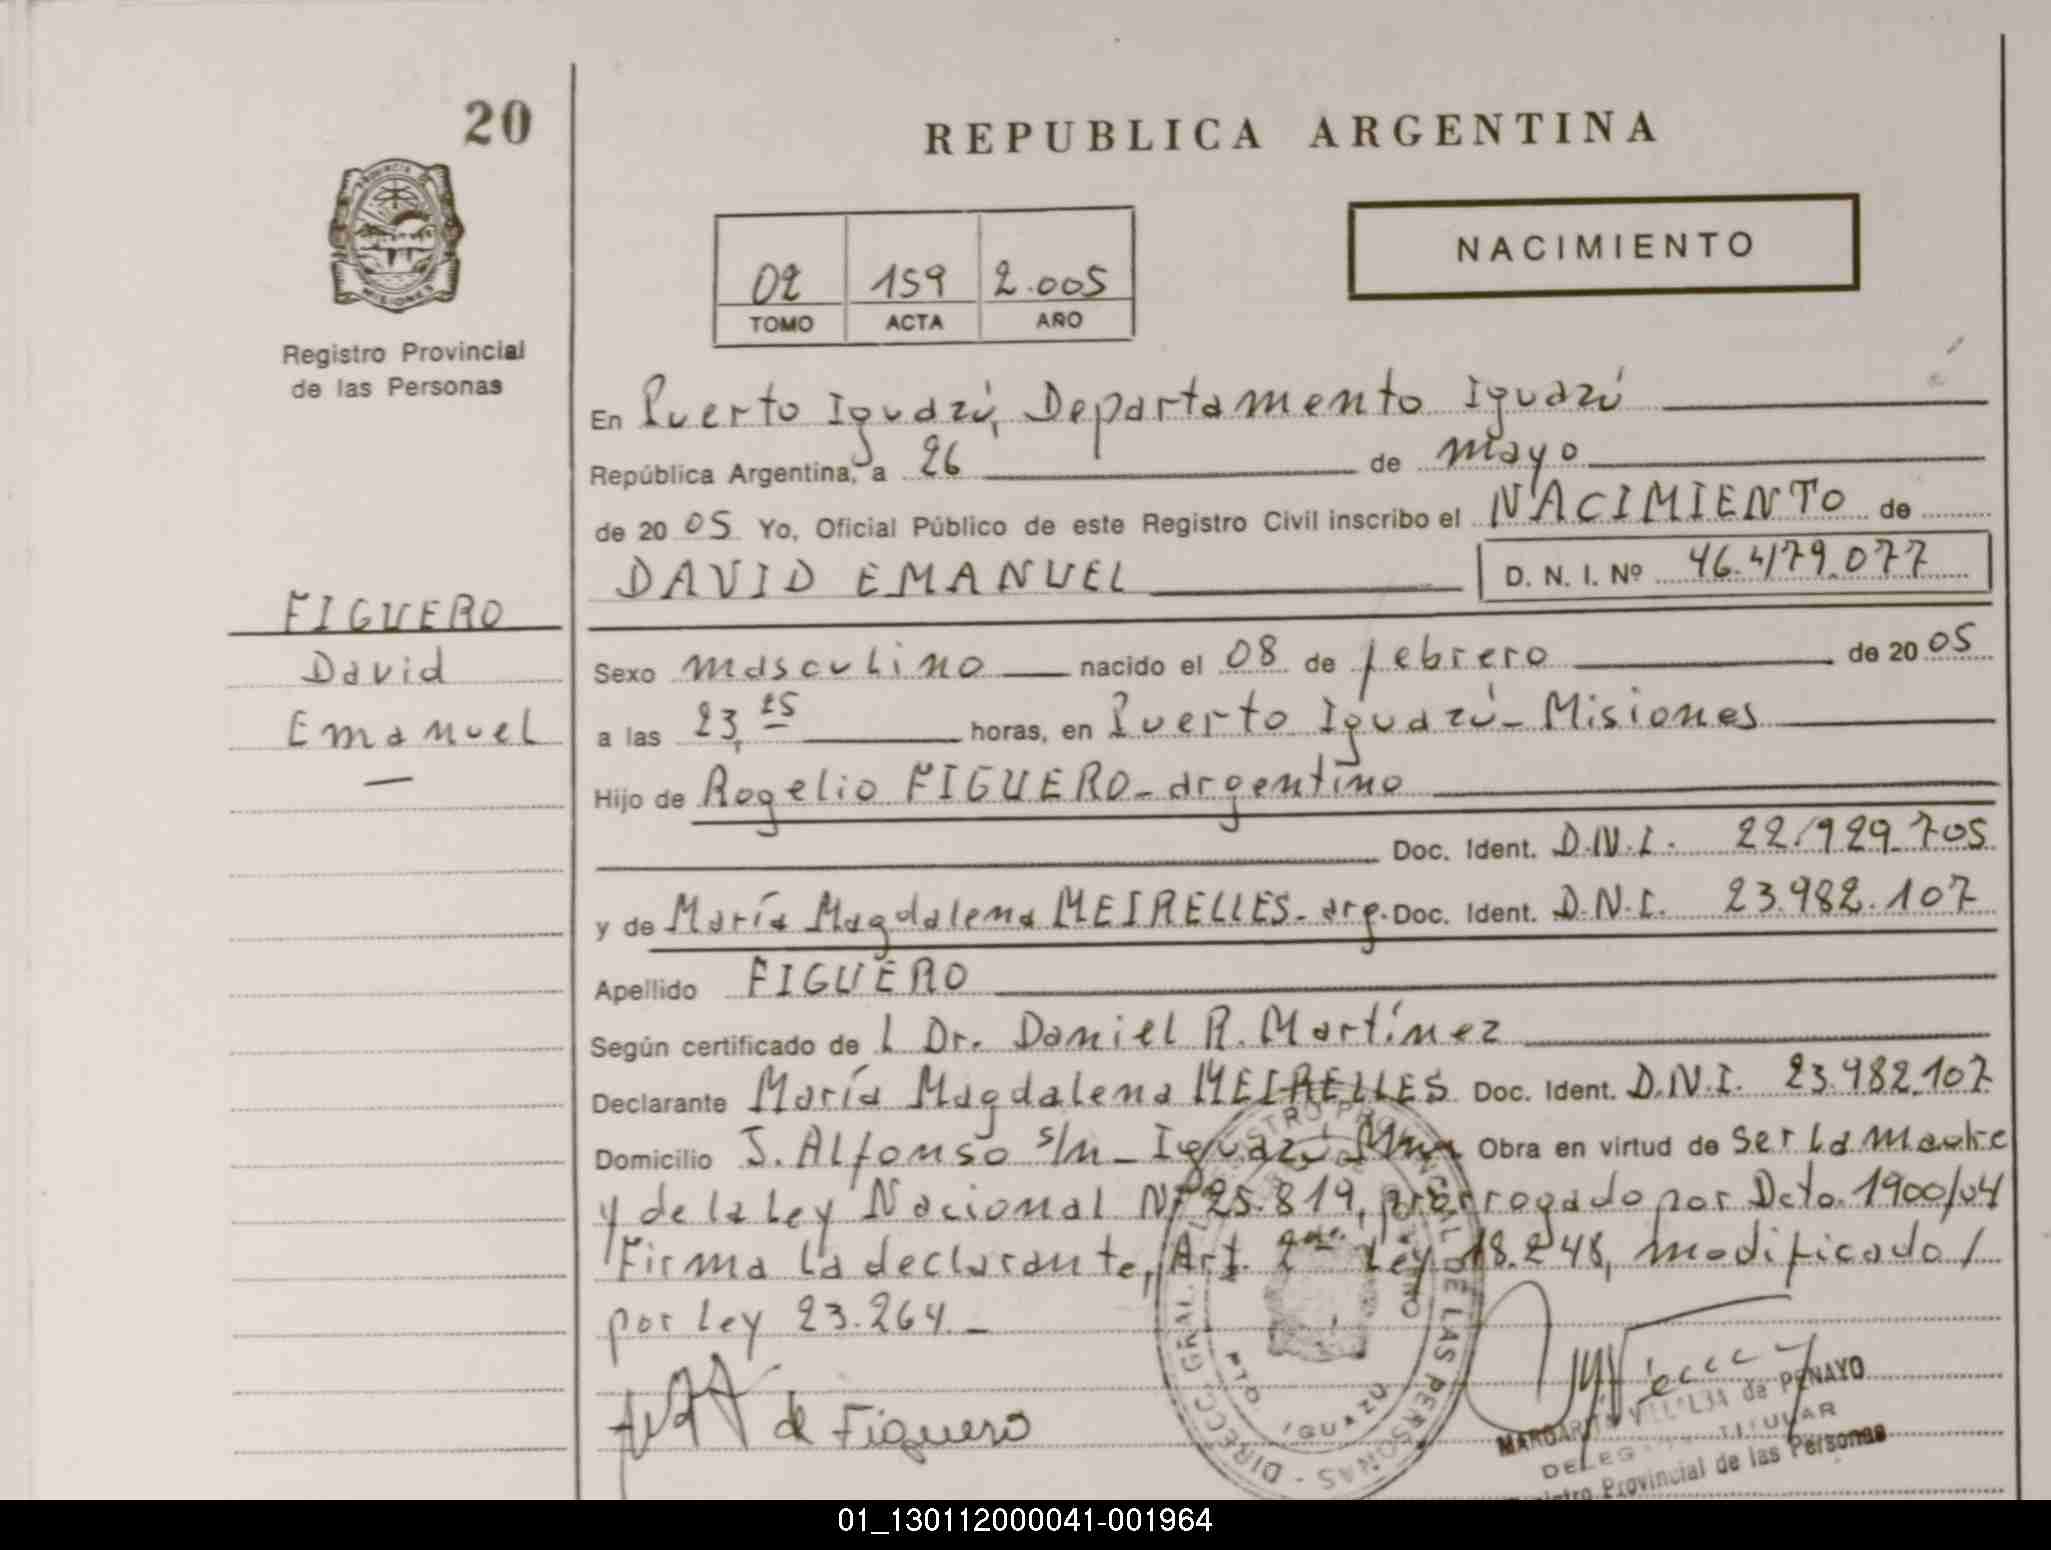 20
REPUBLICA ARGENTINA
PROVINCIA DE
MISIONES
NACIMIENTO
02 159 2.005
TOMO ACTA AÑO
Registro Provincial
de las Personas
En Puerto Iguazú, Departamento Iguazú
República Argentina, a 26 de mayo
de 20 05 Yo, Oficial Público de este Registro Civil inscribo el NACIMIENTO de
DAVID EMANUEL D. N. I. Nº 46.479.077
FIGUERO
David
Emanuel
Sexo masculino nacido el 08 de febrero de 20 05
a las 23, 25 horas, en Puerto Iguazú - Misiones
Hijo de Rogelio FIGUERO - argentino
Doc. Ident. D.N.I. 22.929.705
y de María Magdalena MEIRELLES - arg. Doc. Ident. D.N.I. 23.982.107
Apellido FIGUERO
Según certificado de l Dr. Daniel R. Martínez
Declarante María Magdalena MEIRELLES Doc. Ident. D.N.I. 23.982.107
Domicilio J. Alfonso s/n - Iguazú Mnes Obra en virtud de ser la madre
y de la Ley Nacional Nº 25.819, prorrogado por Dcto. 1900/04
Firma la declarante, Art. 2do. Ley 18.248, modificado /
por Ley 23.264. -
de Figuero
DIRECC. GRAL. REGISTRO PROVINCIAL DE LAS PERSONAS
DPTO. IGUAZU
MARGARITA VILLALBA de PENAYO
DELEGADA TITULAR
Registro Provincial de las Personas
01_130112000041-001964